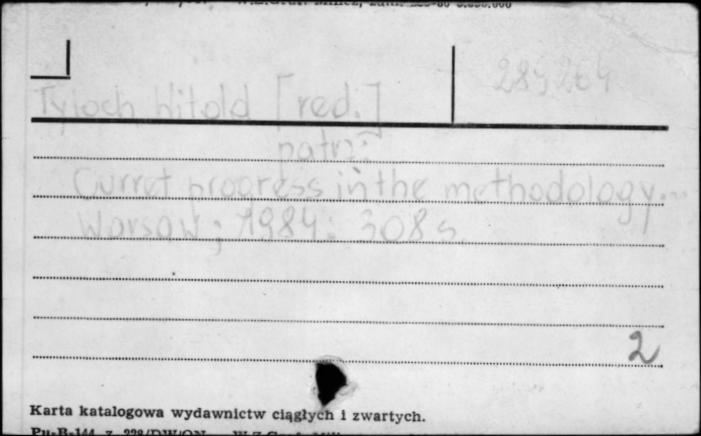 289264
Tyloch Witold [red.]
patrz:
Curret progress in the methodology...
Warsaw; 1984. 308 s.
2
Karta katalogowa wydawnictw ciągłych i zwartych.
Pu-B-144